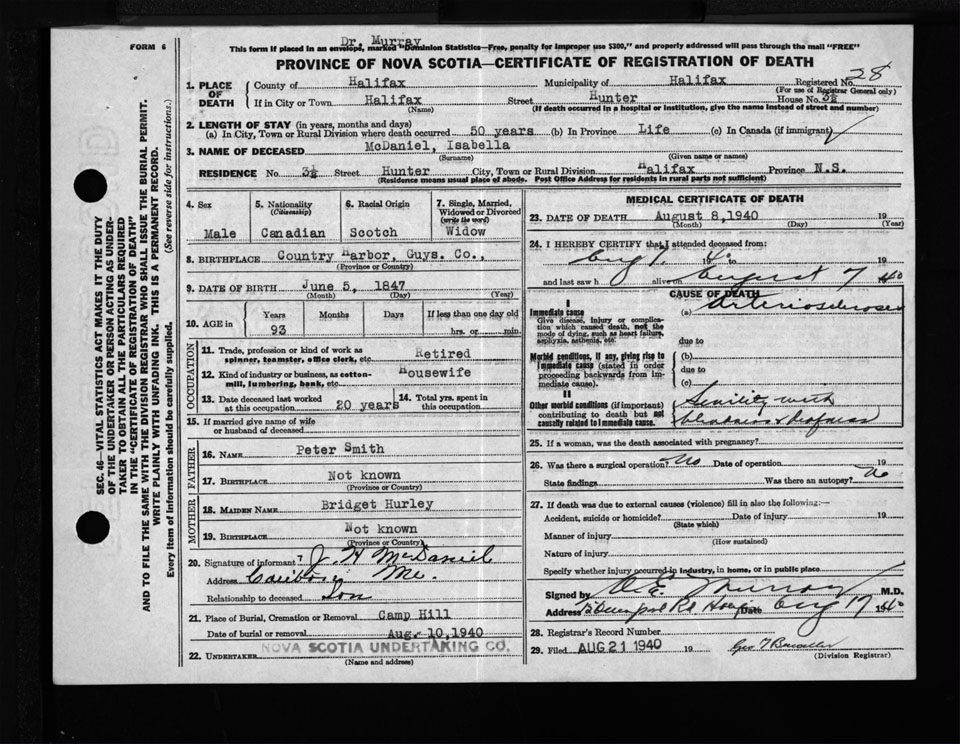 Dr. Murray
FORM 6
This form if placed in an envelope, marked "Dominion Statistics—Free, penalty for improper use $300," and properly addressed will pass through the mail "FREE"
PROVINCE OF NOVA SCOTIA—CERTIFICATE OF REGISTRATION OF DEATH
28
1. PLACE OF DEATH
County of Halifax Municipality of Halifax Registered No.
(For use of Registrar General only)
If in City or Town Halifax Street Hunter House No. 3½
(Name) (If death occurred in a hospital or institution, give the name instead of street and number)
2. LENGTH OF STAY (in years, months and days)
(a) In City, Town or Rural Division where death occurred 50 years (b) In Province Life (c) In Canada (if immigrant)
3. NAME OF DECEASED McDaniel, Isabella
(Surname) (Given name or names)
RESIDENCE No. 3½ Street Hunter City, Town or Rural Division Halifax Province N.S.
(Residence means usual place of abode. Post Office Address for residents in rural parts not sufficient)
4. Sex
Male
5. Nationality
(Citizenship)
Canadian
6. Racial Origin
Scotch
7. Single, Married, Widowed or Divorced
(write the word)
Widow
8. BIRTHPLACE Country Harbor, Guys. Co.,
(Province or Country)
9. DATE OF BIRTH June 5, 1847
(Month) (Day) (Year)
10. AGE in
Years Months Days If less than one day old
93 hrs. or min.
OCCUPATION
11. Trade, profession or kind of work as spinner, teamster, office clerk, etc. Retired
12. Kind of industry or business, as cotton-mill, lumbering, bank, etc. Housewife
13. Date deceased last worked at this occupation 20 years
14. Total yrs. spent in this occupation
15. If married give name of wife or husband of deceased
FATHER
16. NAME Peter Smith
17. BIRTHPLACE Not known
(Province or Country)
MOTHER
18. MAIDEN NAME Bridget Hurley
19. BIRTHPLACE Not known
(Province or Country)
20. Signature of informant J. H McDaniel
Address Caribou Me.
Relationship to deceased Son
21. Place of Burial, Cremation or Removal Camp Hill
Date of burial or removal Aug. 10, 1940
22. UNDERTAKER NOVA SCOTIA UNDERTAKING CO.
(Name and address)
MEDICAL CERTIFICATE OF DEATH
23. DATE OF DEATH August 8, 1940 19
(Month) (Day) (Year)
24. I HEREBY CERTIFY that I attended deceased from:
Aug 1 40 to
and last saw h alive on August 7 1940
CAUSE OF DEATH
I
Immediate cause
Give disease, injury or complication which caused death, not the mode of dying, such as heart failure, asphyxia, asthenia, etc.
(a) Arteriosclerosis
due to
Morbid conditions, if any, giving rise to immediate cause (stated in order proceeding backwards from immediate cause).
(b)
due to
(c)
II
Other morbid conditions (if important) contributing to death but not causally related to immediate cause.
Senility with
blindness & deafness
25. If a woman, was the death associated with pregnancy?
26. Was there a surgical operation? No Date of operation 19
State findings Was there an autopsy? No
27. If death was due to external causes (violence) fill in also the following:—
Accident, suicide or homicide? Date of injury 19
(State which)
Manner of injury
(How sustained)
Nature of injury
Specify whether injury occurred in industry, in home, or in public place
Signed by Murray M.D.
Address Date Aug 17 1940
28. Registrar's Record Number
29. Filed AUG 21 1940 19
(Division Registrar)
SEC. 46—VITAL STATISTICS ACT MAKES IT THE DUTY
OF THE UNDERTAKER OR PERSON ACTING AS UNDER-
TAKER TO OBTAIN ALL THE PARTICULARS REQUIRED
IN THE "CERTIFICATE OF REGISTRATION OF DEATH"
AND TO FILE THE SAME WITH THE DIVISION REGISTRAR WHO SHALL ISSUE THE BURIAL PERMIT.
WRITE PLAINLY WITH UNFADING INK. THIS IS A PERMANENT RECORD.
Every item of Information should be carefully supplied. (See reverse side for instructions.)